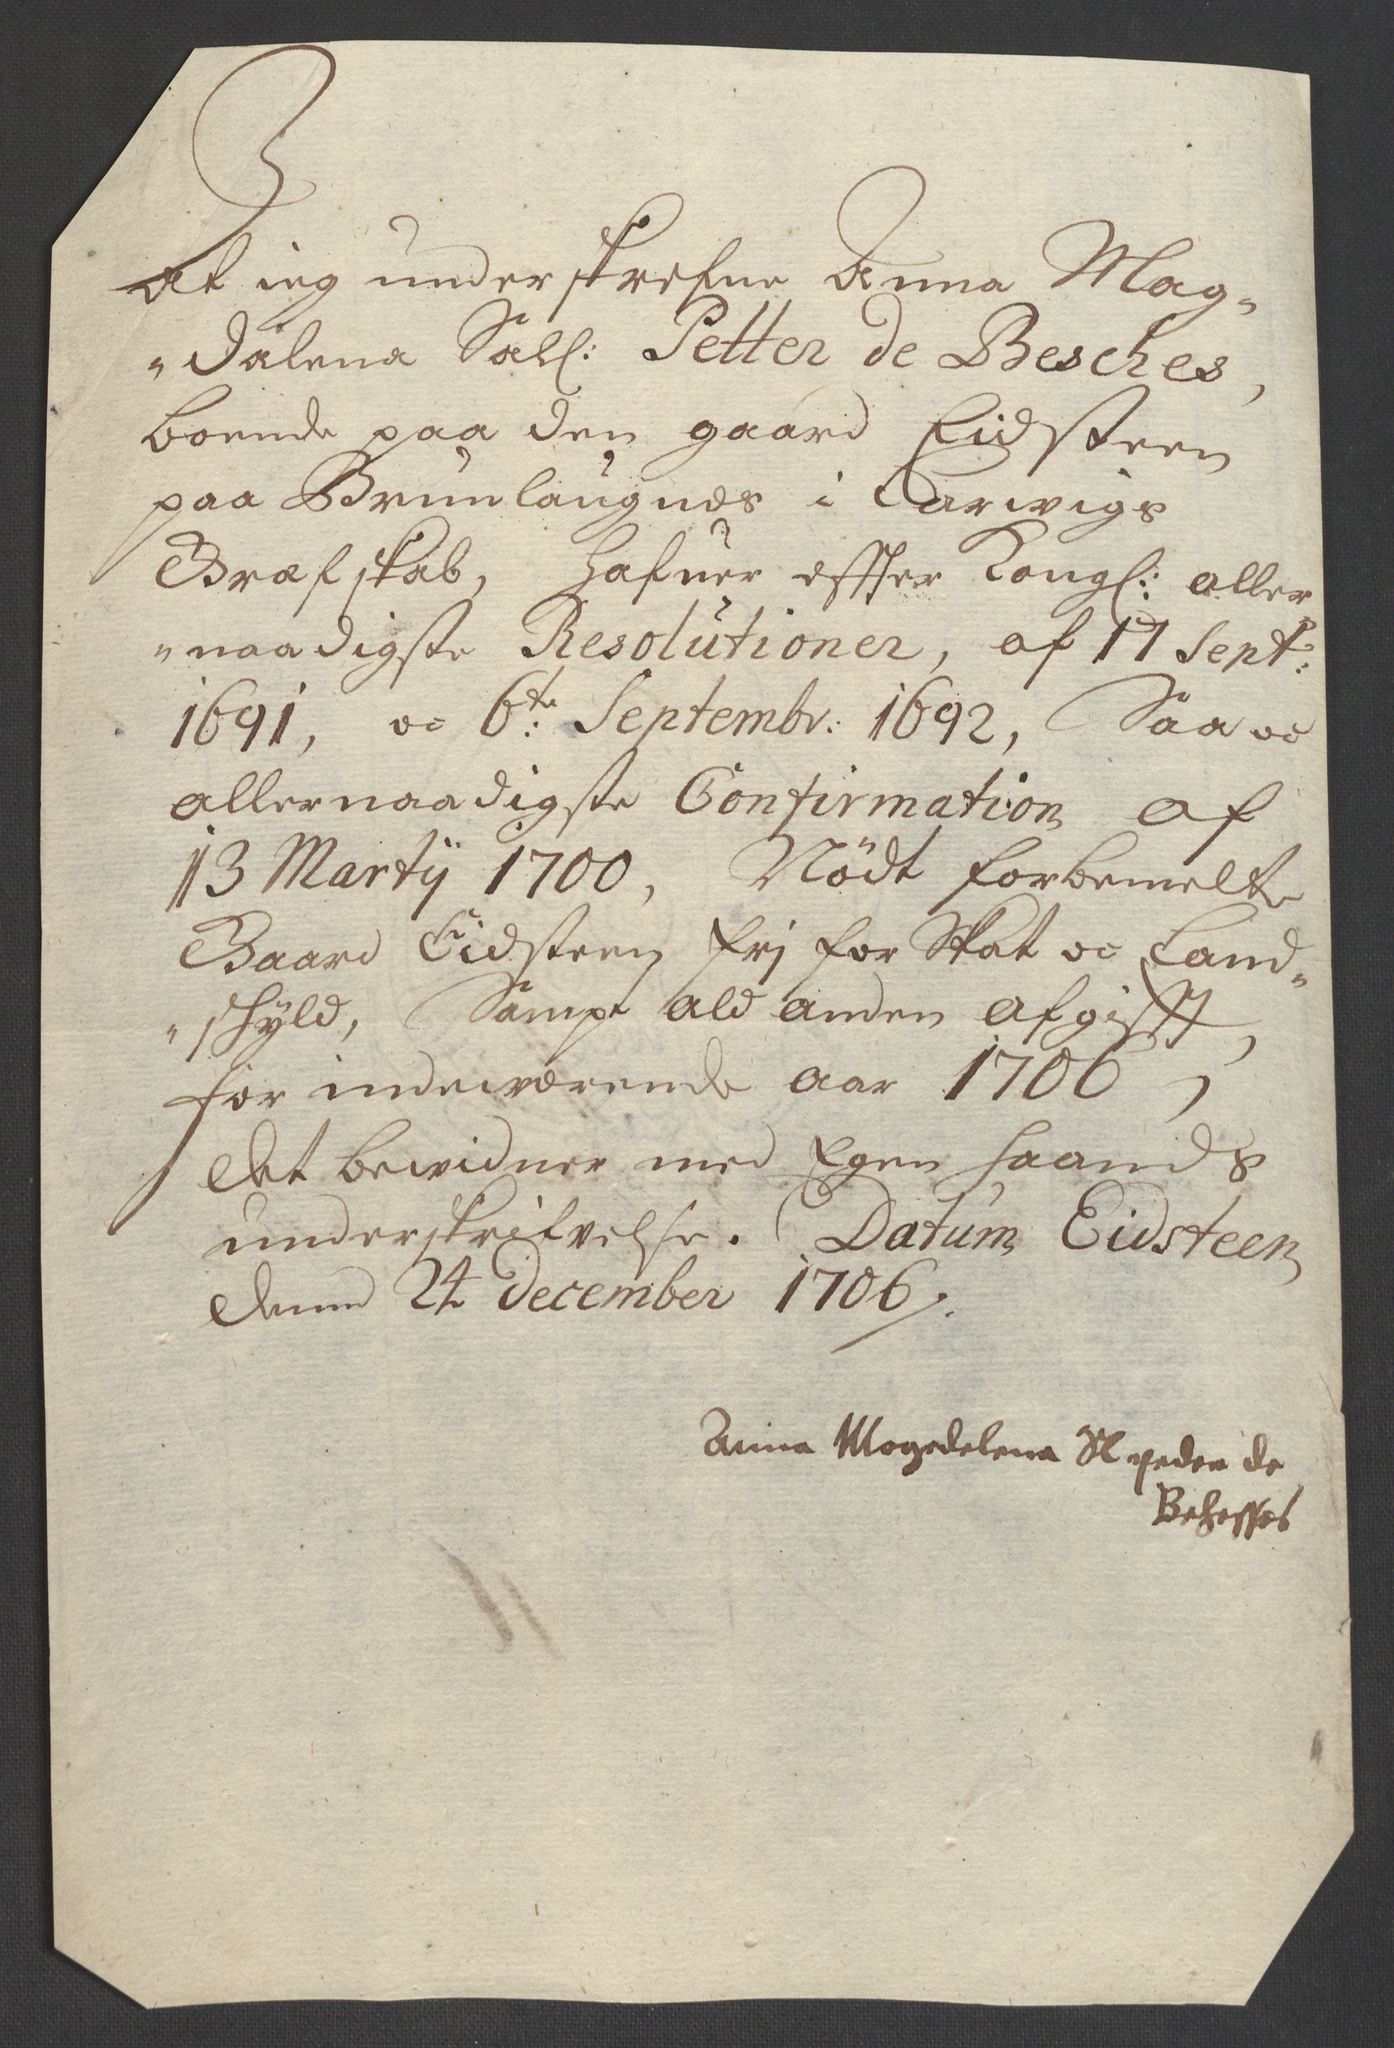 At ieg underskrefne Anna Mag-
-dalena Sall: Petter de Besches,
boende paa den gaard Eidsteen
paa Brunlaugnæs i Laurvigs
Græfskab, hafuer effter Kongl: aller
-naadigste Resolutioner, af 17 Sept:
1691, oc 6te: Septembr: 1692, Saa oc
allernaadigste Confirmation af
13 Martij 1700, Nödt forbemelte
Gaard Eidsteen frj for Skat oc Land-
-skyld, Sampt ald anden afgifft,
for indeværende aar 1706,
det bewidner med Egen haands
underskrifvelse. Datum Eidsteen
denn 24 december 1706.
Anna Magedelena Sl peder de
Behesses